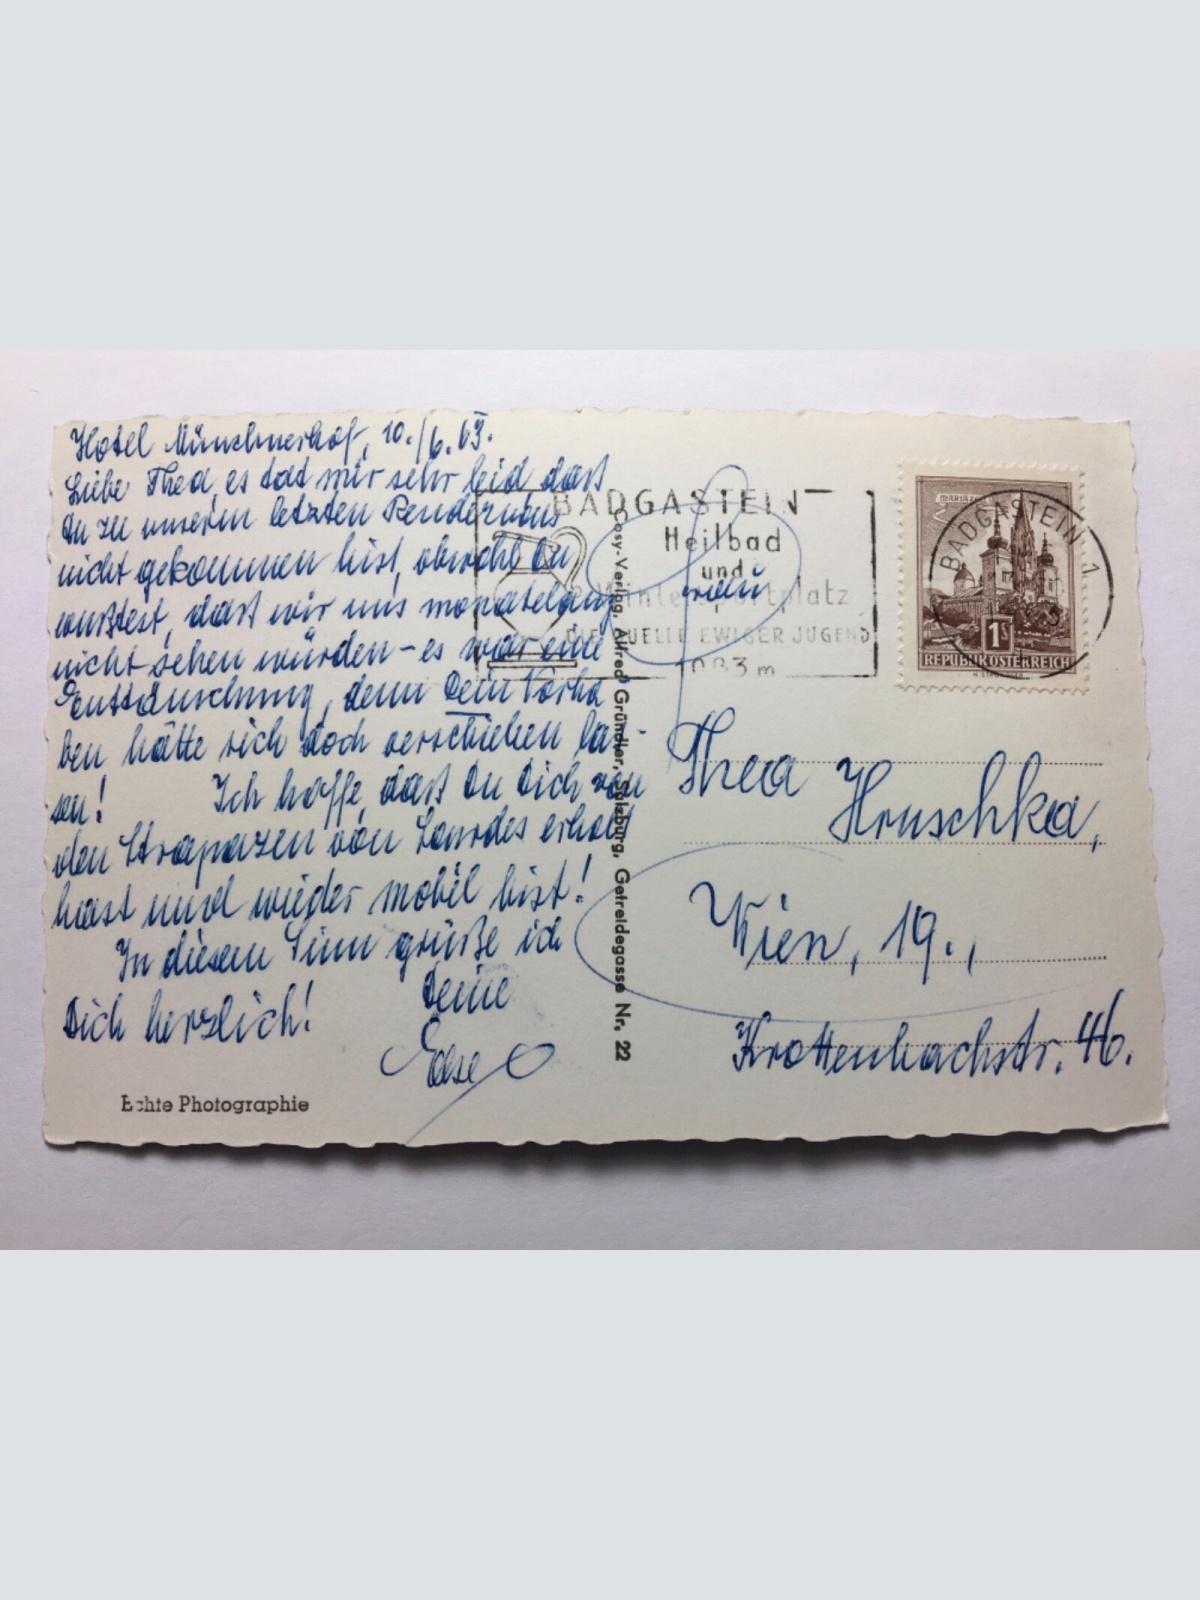 Hotel Münchnerhof, 10./6. 63.
Liebe Thea, es tat mir sehr leid daß
Du zu unserem letzten Rendezvous
nicht gekommen bist, obwohl Du
wußtest, daß wir uns monatelang
nicht sehen würden – es war eine
Enttäuschung, denn Dein Vorha
ben hätte sich doch verschieben las-
sen!
Ich hoffe, daß Du Dich von
den Strapazen von Lourdes erholt
hast und wieder mobil bist!
In diesem Sinn grüße ich
Dich herzlich!
Deine
Echte Photographie
Cosy-Verlag, Alfred Gründler, Salzburg, Getreidegasse Nr. 22
BADGASTEIN
Heilbad
und
Wintersportplatz
DIE QUELLE EWIGER JUGEND
1083 m
BADGASTEIN 1
MARIAZELL
1S
REPUBLIK ÖSTERREICH
Thea
Hruschka,
Wien, 19.,
Krottenbachstr. 46.